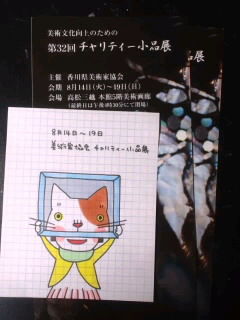 美術文化向上のための
第32回 チャリティー小品展
主催 香川県美術家協会
会期 8月14日(火)〜19日(日)
会場 高松三越 本館5階美術画廊
(最終日は午後4時30分にて閉場)
8月14日〜19日
美術家協会 チャリティー小品展